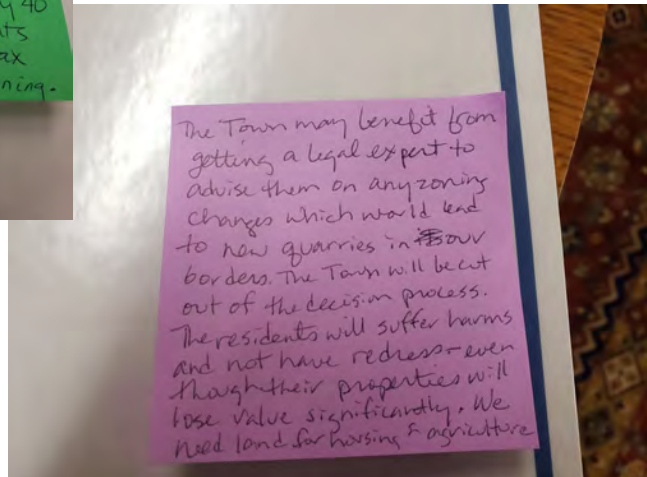 40
ts
ax
ning.
The Town may benefit from
getting a legal expert to
advise them on any zoning
changes which would lead
to new quarries in our
borders. The Town will be cut
out of the decision process.
The residents will suffer harms
and not have redress - even
though their properties will
lose value significantly. We
need land for housing & agriculture